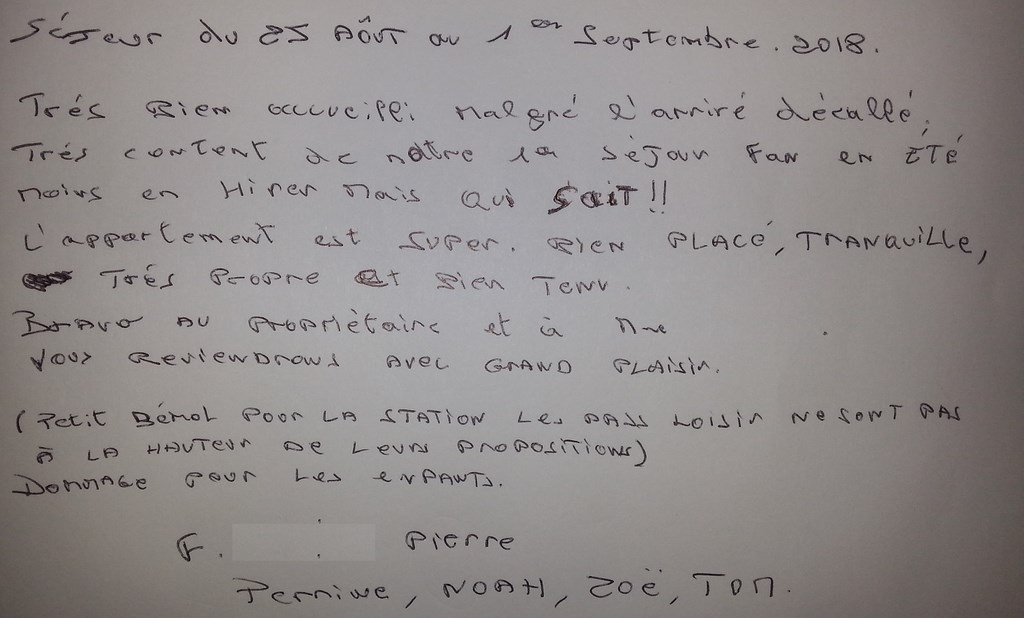 Séjour du 25 AÔUT au 1er Septembre. 2018.
Trés Bien accueilli malgré l'arriré décallé.
Trés content de nôtre 1er séjour Fan en ÉTÉ
moins en Hiver Mais Qui SAIT!!
L'appartement est SUPER. BIEN PLACÉ, TRANQUILLE,
Trés Propre Et Bien Tenu.
BRAVO AU PROPRIÈTAIRE et à Mme
Vous REVIENDRONS AVEC GRAND PLAISIR.
(Petit Bémol POUR LA STATION LES PASS LOISIR NE SONT PAS
À LA HAUTEUR DE LEURS PROPOSITIONS)
DOMMAGE POUR LES ENFANTS.
F. Pierre
Perrine, NOAH, Zoë, TOM.